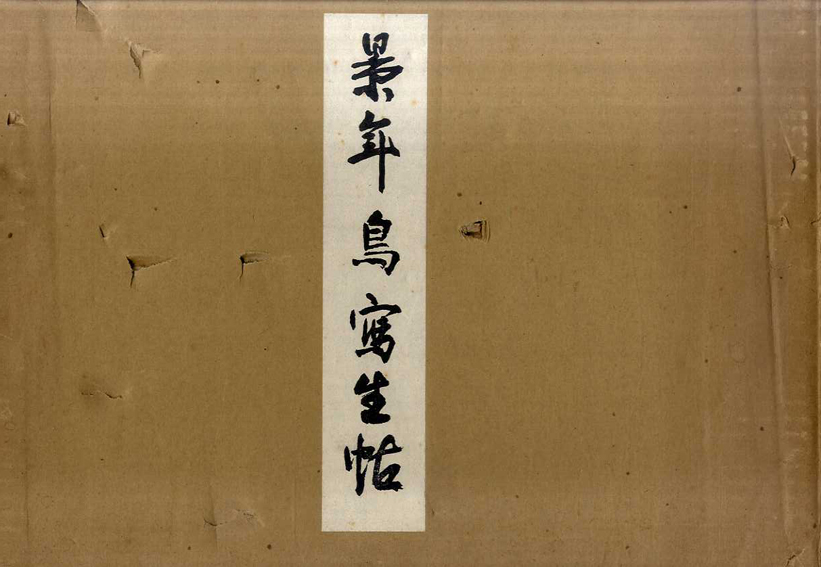 景年鳥寫生帖